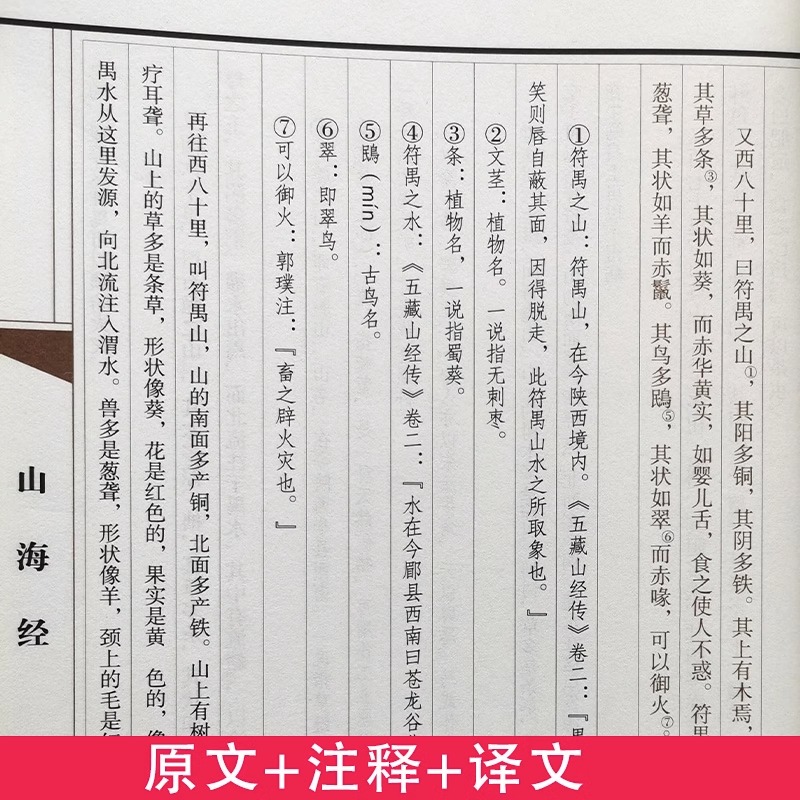 又西八十里，曰符禺之山①，其阳多铜，其阴多铁。其上有木焉，
其草多条③，其状如葵，而赤华黄实，如婴儿舌，食之使人不惑。符
葱聋，其状如羊而赤鬣。其鸟多鴖⑤，其状如翠⑥而赤喙，可以御火⑦。
①符禺之山：符禺山，在今陕西境内。《五藏山经传》卷二：『
笑则唇自蔽其面，因得脱走，此符禺山水之所取象也。』
②文茎：植物名。一说指无刺枣。
③条：植物名，一说指蜀葵。
④符禺之水：《五藏山经传》卷二：『水在今郿县西南曰苍龙谷
⑤鴖（mín）：古鸟名。
⑥翠：即翠鸟。
⑦可以御火：郭璞注：『畜之辟火灾也。』
再往西八十里，叫符禺山，山的南面多产铜，北面多产铁。山上有树
疗耳聋。山上的草多是条草，形状像葵，花是红色的，果实是黄 色的，像
禺水从这里发源，向北流注入渭水。兽多是葱聋，形状像羊，颈上的毛是
山海经
原文+注释+译文